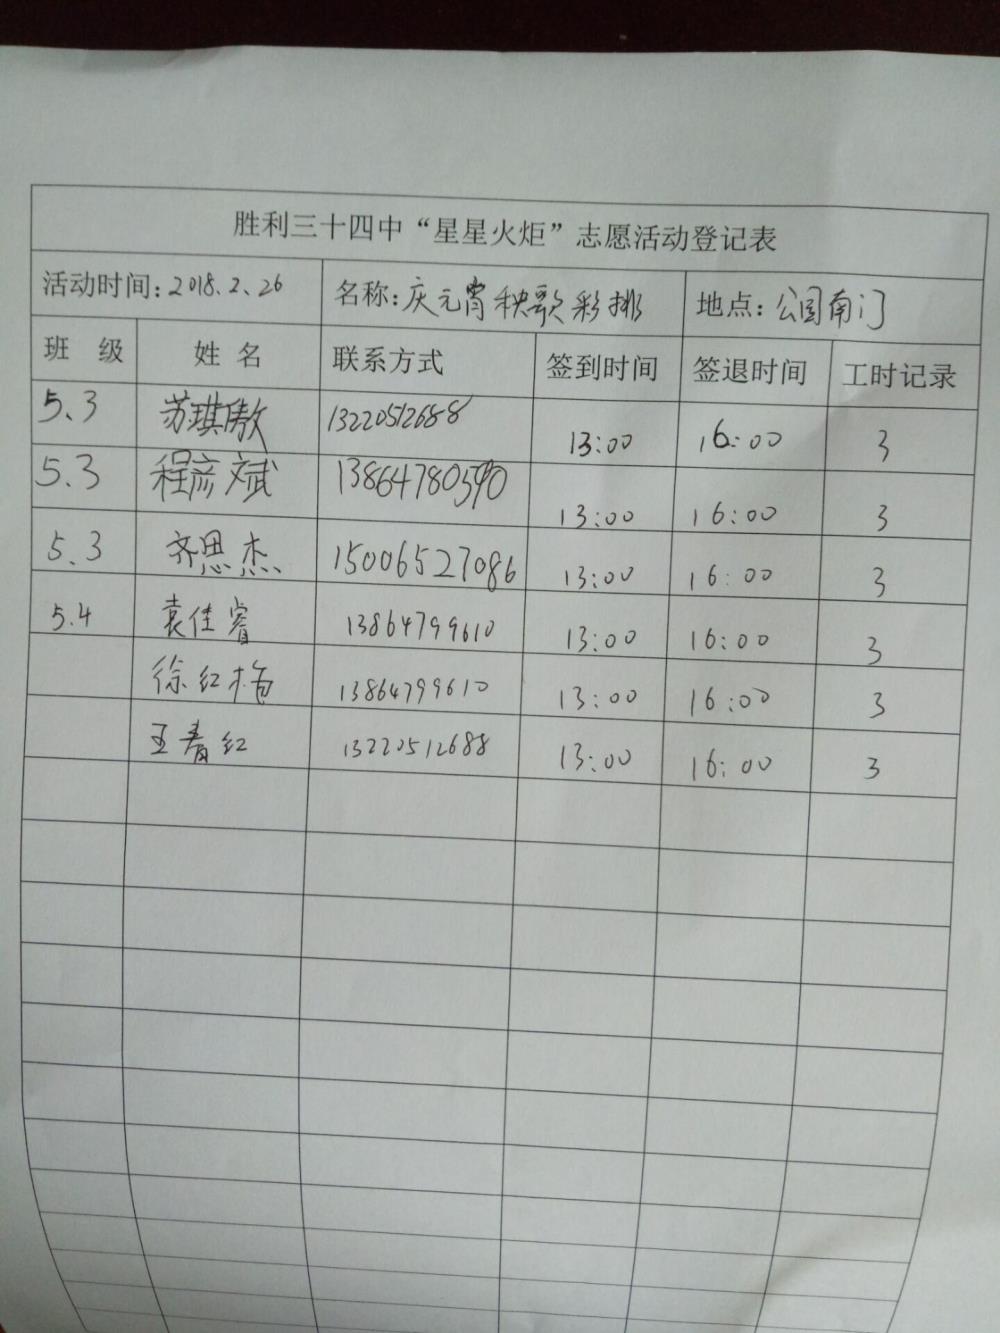 胜利三十四中“星星火炬”志愿活动登记表
活动时间：2018.2.26 名称：庆元宵秧歌彩排 地点：公园南门
班 级 姓 名 联系方式 签到时间 签退时间 工时记录
5.3 苏琪傲 13220512688 13:00 16:00 3
5.3 程彦斌 13864780590 13:00 16:00 3
5.3 齐思杰 15006527086 13:00 16:00 3
5.4 袁佳睿 13864799610 13:00 16:00 3
徐红梅 13864799610 13:00 16:00 3
王春红 13220512688 13:00 16:00 3